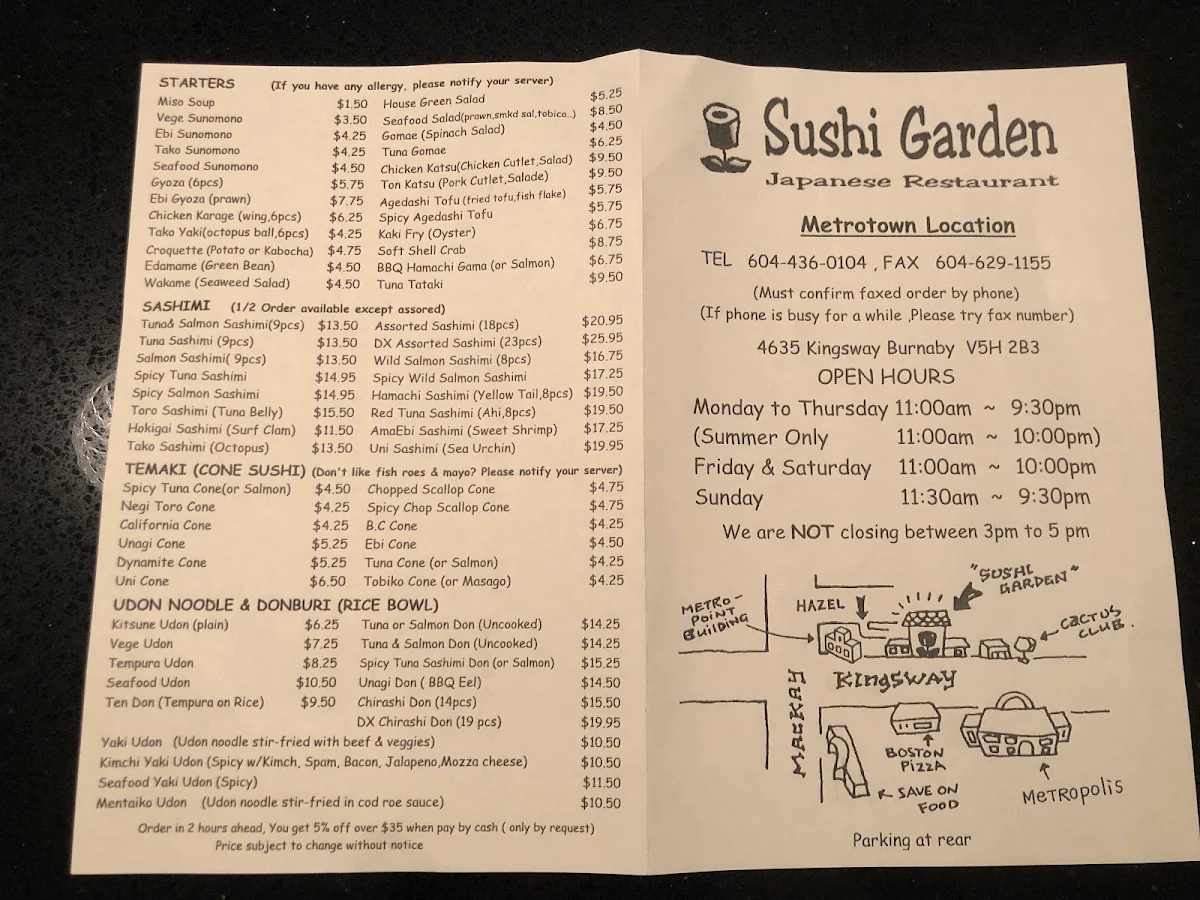 STARTERS (If you have any allergy, please notify your server)
Miso Soup $1.50 House Green Salad $5.25
Vege Sunomono $3.50 Seafood Salad(prawn,smkd sal,tobico..) $8.50
Ebi Sunomono $4.25 Gomae (Spinach Salad) $4.50
Tako Sunomono $4.25 Tuna Gomae $6.25
Seafood Sunomono $4.50 Chicken Katsu(Chicken Cutlet,Salad) $9.50
Gyoza (6pcs) $5.75 Ton Katsu (Pork Cutlet,Salade) $9.50
Ebi Gyoza (prawn) $7.75 Agedashi Tofu (fried tofu,fish flake) $5.75
Chicken Karage (wing,6pcs) $6.25 Spicy Agedashi Tofu $5.75
Tako Yaki(octopus ball,6pcs) $4.25 Kaki Fry (Oyster) $6.75
Croquette (Potato or Kabocha) $4.75 Soft Shell Crab $8.75
Edamame (Green Bean) $4.50 BBQ Hamachi Gama (or Salmon) $6.75
Wakame (Seaweed Salad) $4.50 Tuna Tataki $9.50
SASHIMI (1/2 Order available except assored)
Tuna& Salmon Sashimi(9pcs) $13.50 Assorted Sashimi (18pcs) $20.95
Tuna Sashimi (9pcs) $13.50 DX Assorted Sashimi (23pcs) $25.95
Salmon Sashimi( 9pcs) $13.50 Wild Salmon Sashimi (8pcs) $16.75
Spicy Tuna Sashimi $14.95 Spicy Wild Salmon Sashimi $17.25
Spicy Salmon Sashimi $14.95 Hamachi Sashimi (Yellow Tail,8pcs) $19.50
Toro Sashimi (Tuna Belly) $15.50 Red Tuna Sashimi (Ahi,8pcs) $19.50
Hokigai Sashimi (Surf Clam) $11.50 AmaEbi Sashimi (Sweet Shrimp) $17.25
Tako Sashimi (Octopus) $13.50 Uni Sashimi (Sea Urchin) $19.95
TEMAKI (CONE SUSHI) (Don't like fish roes & mayo? Please notify your server)
Spicy Tuna Cone(or Salmon) $4.50 Chopped Scallop Cone $4.75
Negi Toro Cone $4.25 Spicy Chop Scallop Cone $4.75
California Cone $4.25 B.C Cone $4.25
Unagi Cone $5.25 Ebi Cone $4.50
Dynamite Cone $5.25 Tuna Cone (or Salmon) $4.25
Uni Cone $6.50 Tobiko Cone (or Masago) $4.25
UDON NOODLE & DONBURI (RICE BOWL)
Kitsune Udon (plain) $6.25 Tuna or Salmon Don (Uncooked) $14.25
Vege Udon $7.25 Tuna & Salmon Don (Uncooked) $14.25
Tempura Udon $8.25 Spicy Tuna Sashimi Don (or Salmon) $15.25
Seafood Udon $10.50 Unagi Don ( BBQ Eel) $14.50
Ten Don (Tempura on Rice) $9.50 Chirashi Don (14pcs) $15.50
DX Chirashi Don (19 pcs) $19.95
Yaki Udon (Udon noodle stir-fried with beef & veggies) $10.50
Kimchi Yaki Udon (Spicy w/Kimch, Spam, Bacon, Jalapeno,Mozza cheese) $10.50
Seafood Yaki Udon (Spicy) $11.50
Mentaiko Udon (Udon noodle stir-fried in cod roe sauce) $10.50
Order in 2 hours ahead, You get 5% off over $35 when pay by cash ( only by request)
Price subject to change without notice
Sushi Garden
Japanese Restaurant
Metrotown Location
TEL 604-436-0104 , FAX 604-629-1155
(Must confirm faxed order by phone)
(If phone is busy for a while ,Please try fax number)
4635 Kingsway Burnaby V5H 2B3
OPEN HOURS
Monday to Thursday 11:00am ~ 9:30pm
(Summer Only 11:00am ~ 10:00pm)
Friday & Saturday 11:00am ~ 10:00pm
Sunday 11:30am ~ 9:30pm
We are NOT closing between 3pm to 5 pm
METRO-
POINT
BUILDING
HAZEL
"SUSHI
GARDEN"
CACTUS
CLUB.
KINGSWAY
MACKAY
BOSTON
PIZZA
SAVE ON
FOOD
METROPOLIS
Parking at rear